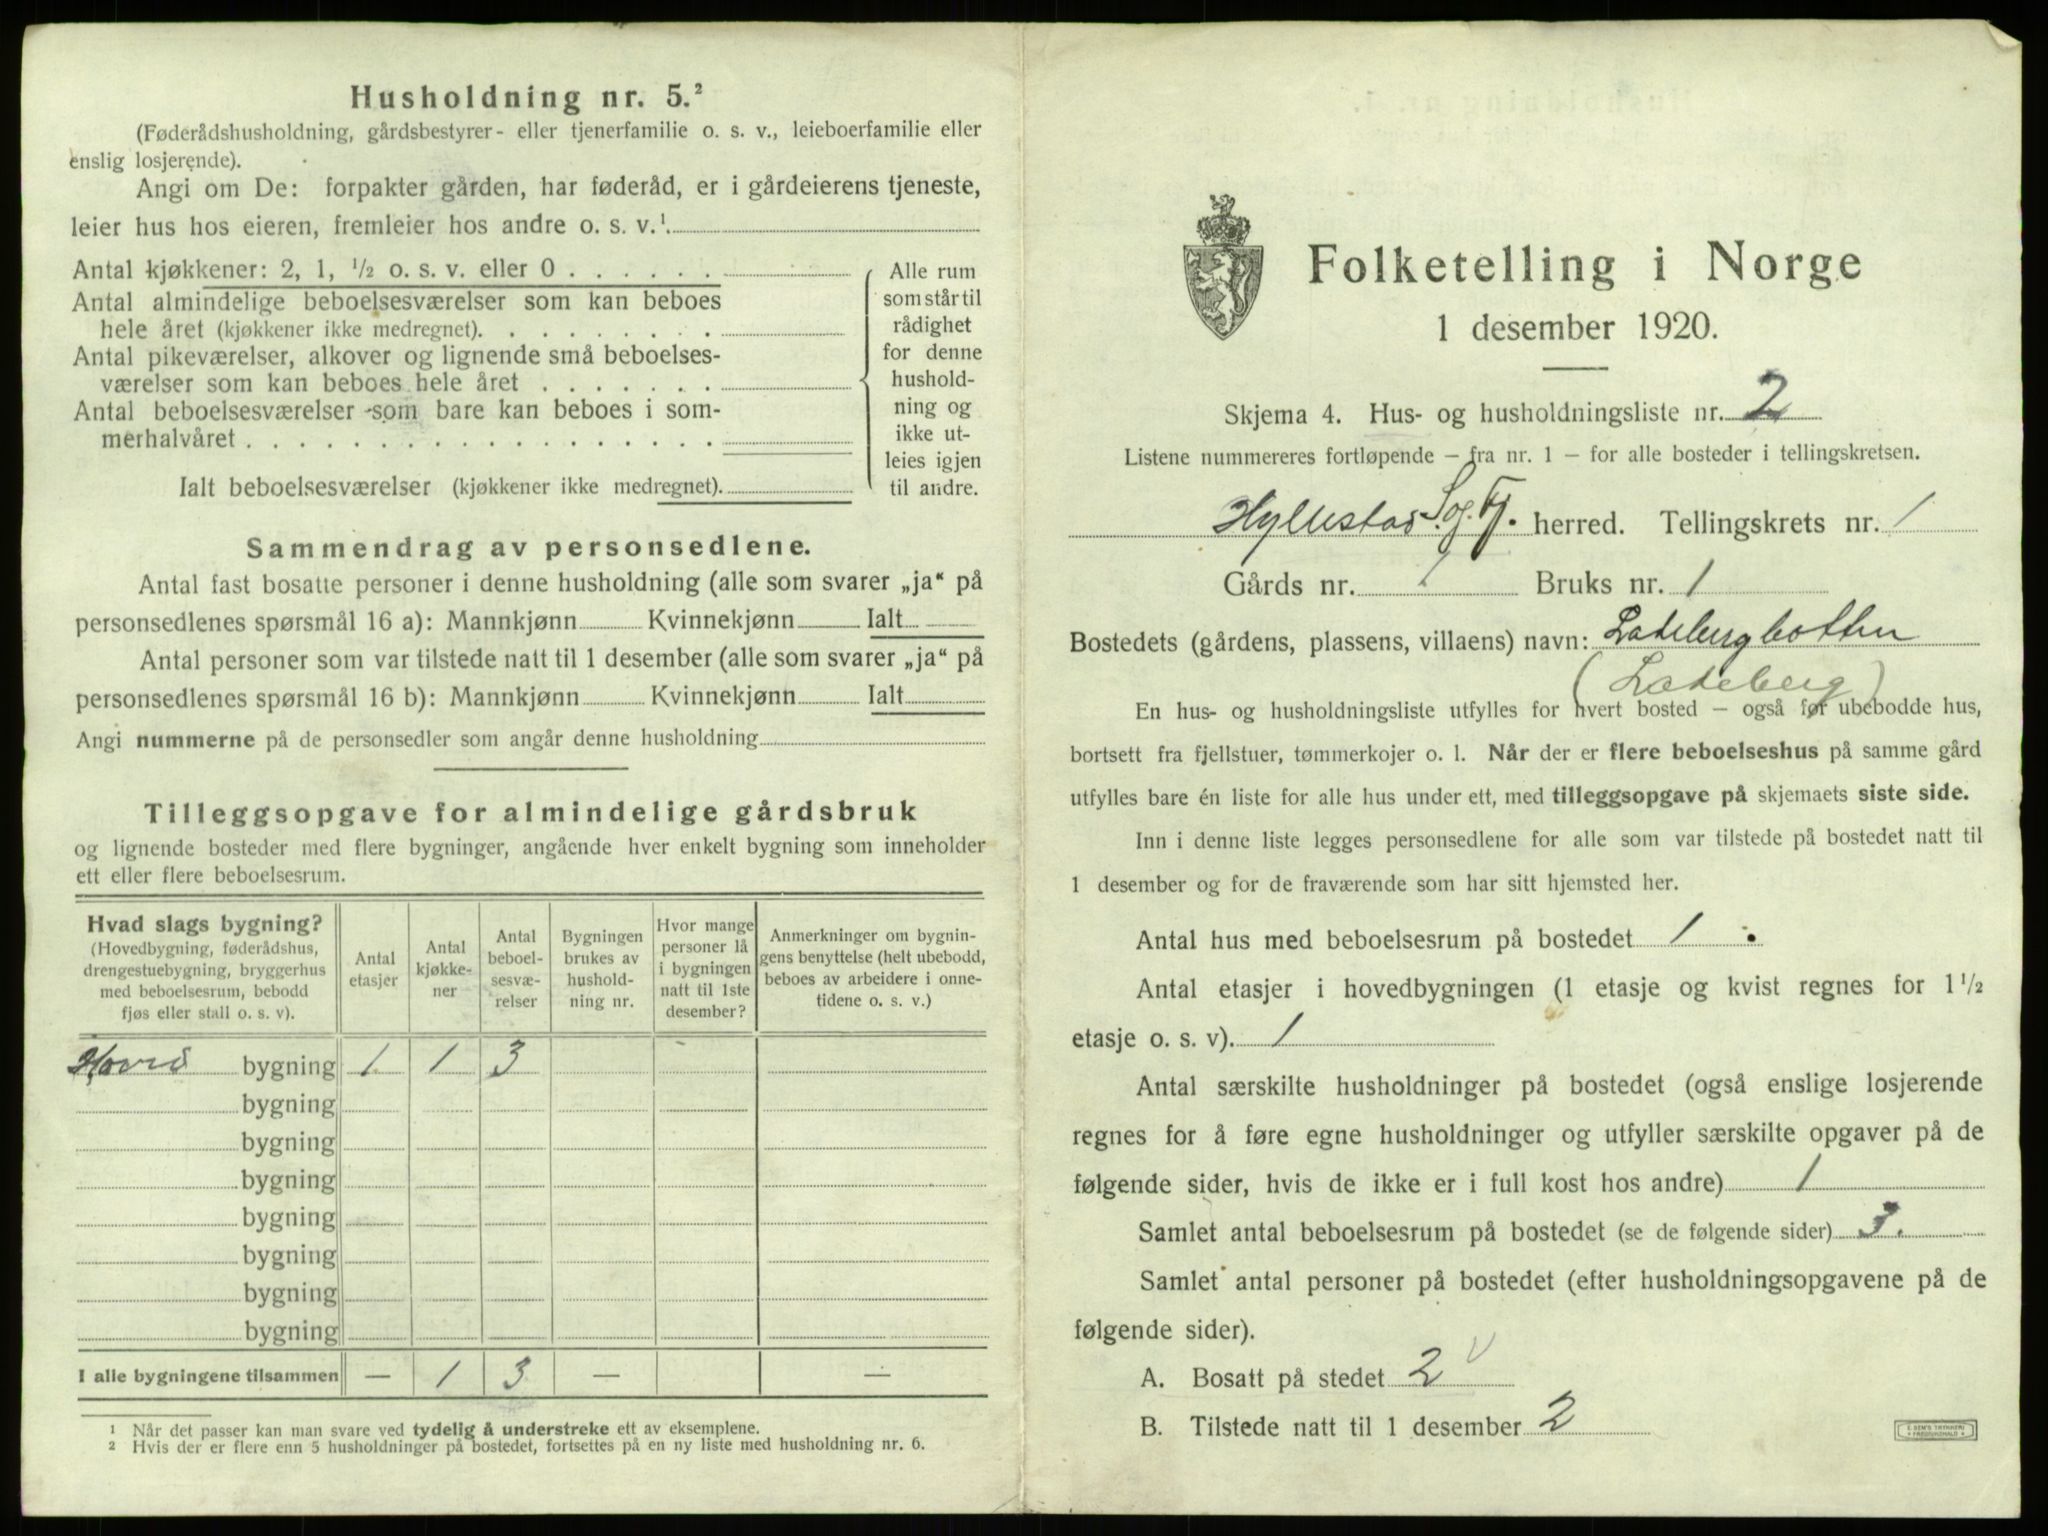 Husholdning nr. 5.²
(Føderådshusholdning, gårdsbestyrer- eller tjenerfamilie o. s. v., leieboerfamilie eller
enslig losjerende).
Angi om De: forpakter gården, har føderåd, er i gårdeierens tjeneste,
leier hus hos eieren, fremleier hos andre o. s. v.¹
Antal kjøkkener: 2, 1, ½ o. s. v. eller 0 . . . . . .
Antal almindelige beboelsesværelser som kan beboes
hele året (kjøkkener ikke medregnet). . . . . . . .
Antal pikeværelser, alkover og lignende små beboelses-
værelser som kan beboes hele året . . . . . . .
Antal beboelsesværelser som bare kan beboes i som-
merhalvåret . . . . . . . . . . . . . . . . . .
Ialt beboelsesværelser (kjøkkener ikke medregnet).
Alle rum
som står til
rådighet
for denne
hushold-
ning og
ikke ut-
leies igjen
til andre.
Sammendrag av personsedlene.
Antal fast bosatte personer i denne husholdning (alle som svarer „ja“ på
personsedlenes spørsmål 16 a): Mannkjønn Kvinnekjønn Ialt
Antal personer som var tilstede natt til 1 desember (alle som svarer „ja“ på
personsedlenes spørsmål 16 b): Mannkjønn Kvinnekjønn Ialt
Angi nummerne på de personsedler som angår denne husholdning
Tilleggsopgave for almindelige gårdsbruk
og lignende bosteder med flere bygninger, angående hver enkelt bygning som inneholder
ett eller flere beboelsesrum.
Hvad slags bygning?
(Hovedbygning, føderådshus,
drengestuebygning, bryggerhus
med beboelsesrum, bebodd
fjøs eller stall o. s. v).
Antal
etasjer
Antal
kjøkke-
ner
Antal
beboel-
sesvæ-
relser
Bygningen
brukes av
hushold-
ning nr.
Hvor mange
personer lå
i bygningen
natt til 1ste
desember?
Anmerkninger om bygnin-
gens benyttelse (helt ubebodd,
beboes av arbeidere i onne-
tidene o. s. v.)
Hoved bygning 1 1 3
bygning
bygning
bygning
bygning
bygning
bygning
bygning
I alle bygningene tilsammen — 1 3 — —
¹ Når det passer kan man svare ved tydelig å understreke ett av eksemplene.
² Hvis der er flere enn 5 husholdninger på bostedet, fortsettes på en ny liste med husholdning nr. 6.
Folketelling i Norge
1 desember 1920.
Skjema 4. Hus- og husholdningsliste nr. 2
Listene nummereres fortløpende — fra nr. 1 — for alle bosteder i tellingskretsen.
Hyllestad Sog. Fj. herred. Tellingskrets nr. 1
Gårds nr. 1 Bruks nr. 1
Bostedets (gårdens, plassens, villaens) navn: Ladebergbotten
(Ladeberg)
En hus- og husholdningsliste utfylles for hvert bosted — også for ubebodde hus,
bortsett fra fjellstuer, tømmerkojer o. l. Når der er flere beboelseshus på samme gård
utfylles bare én liste for alle hus under ett, med tilleggsopgave på skjemaets siste side.
Inn i denne liste legges personsedlene for alle som var tilstede på bostedet natt til
1 desember og for de fraværende som har sitt hjemsted her.
Antal hus med beboelsesrum på bostedet 1
Antal etasjer i hovedbygningen (1 etasje og kvist regnes for 1½
etasje o. s. v). 1
Antal særskilte husholdninger på bostedet (også enslige losjerende
regnes for å føre egne husholdninger og utfyller særskilte opgaver på de
følgende sider, hvis de ikke er i full kost hos andre) 1
Samlet antal beboelsesrum på bostedet (se de følgende sider) 3.
Samlet antal personer på bostedet (efter husholdningsopgavene på de
følgende sider).
A. Bosatt på stedet 2 v
B. Tilstede natt til 1 desember 2